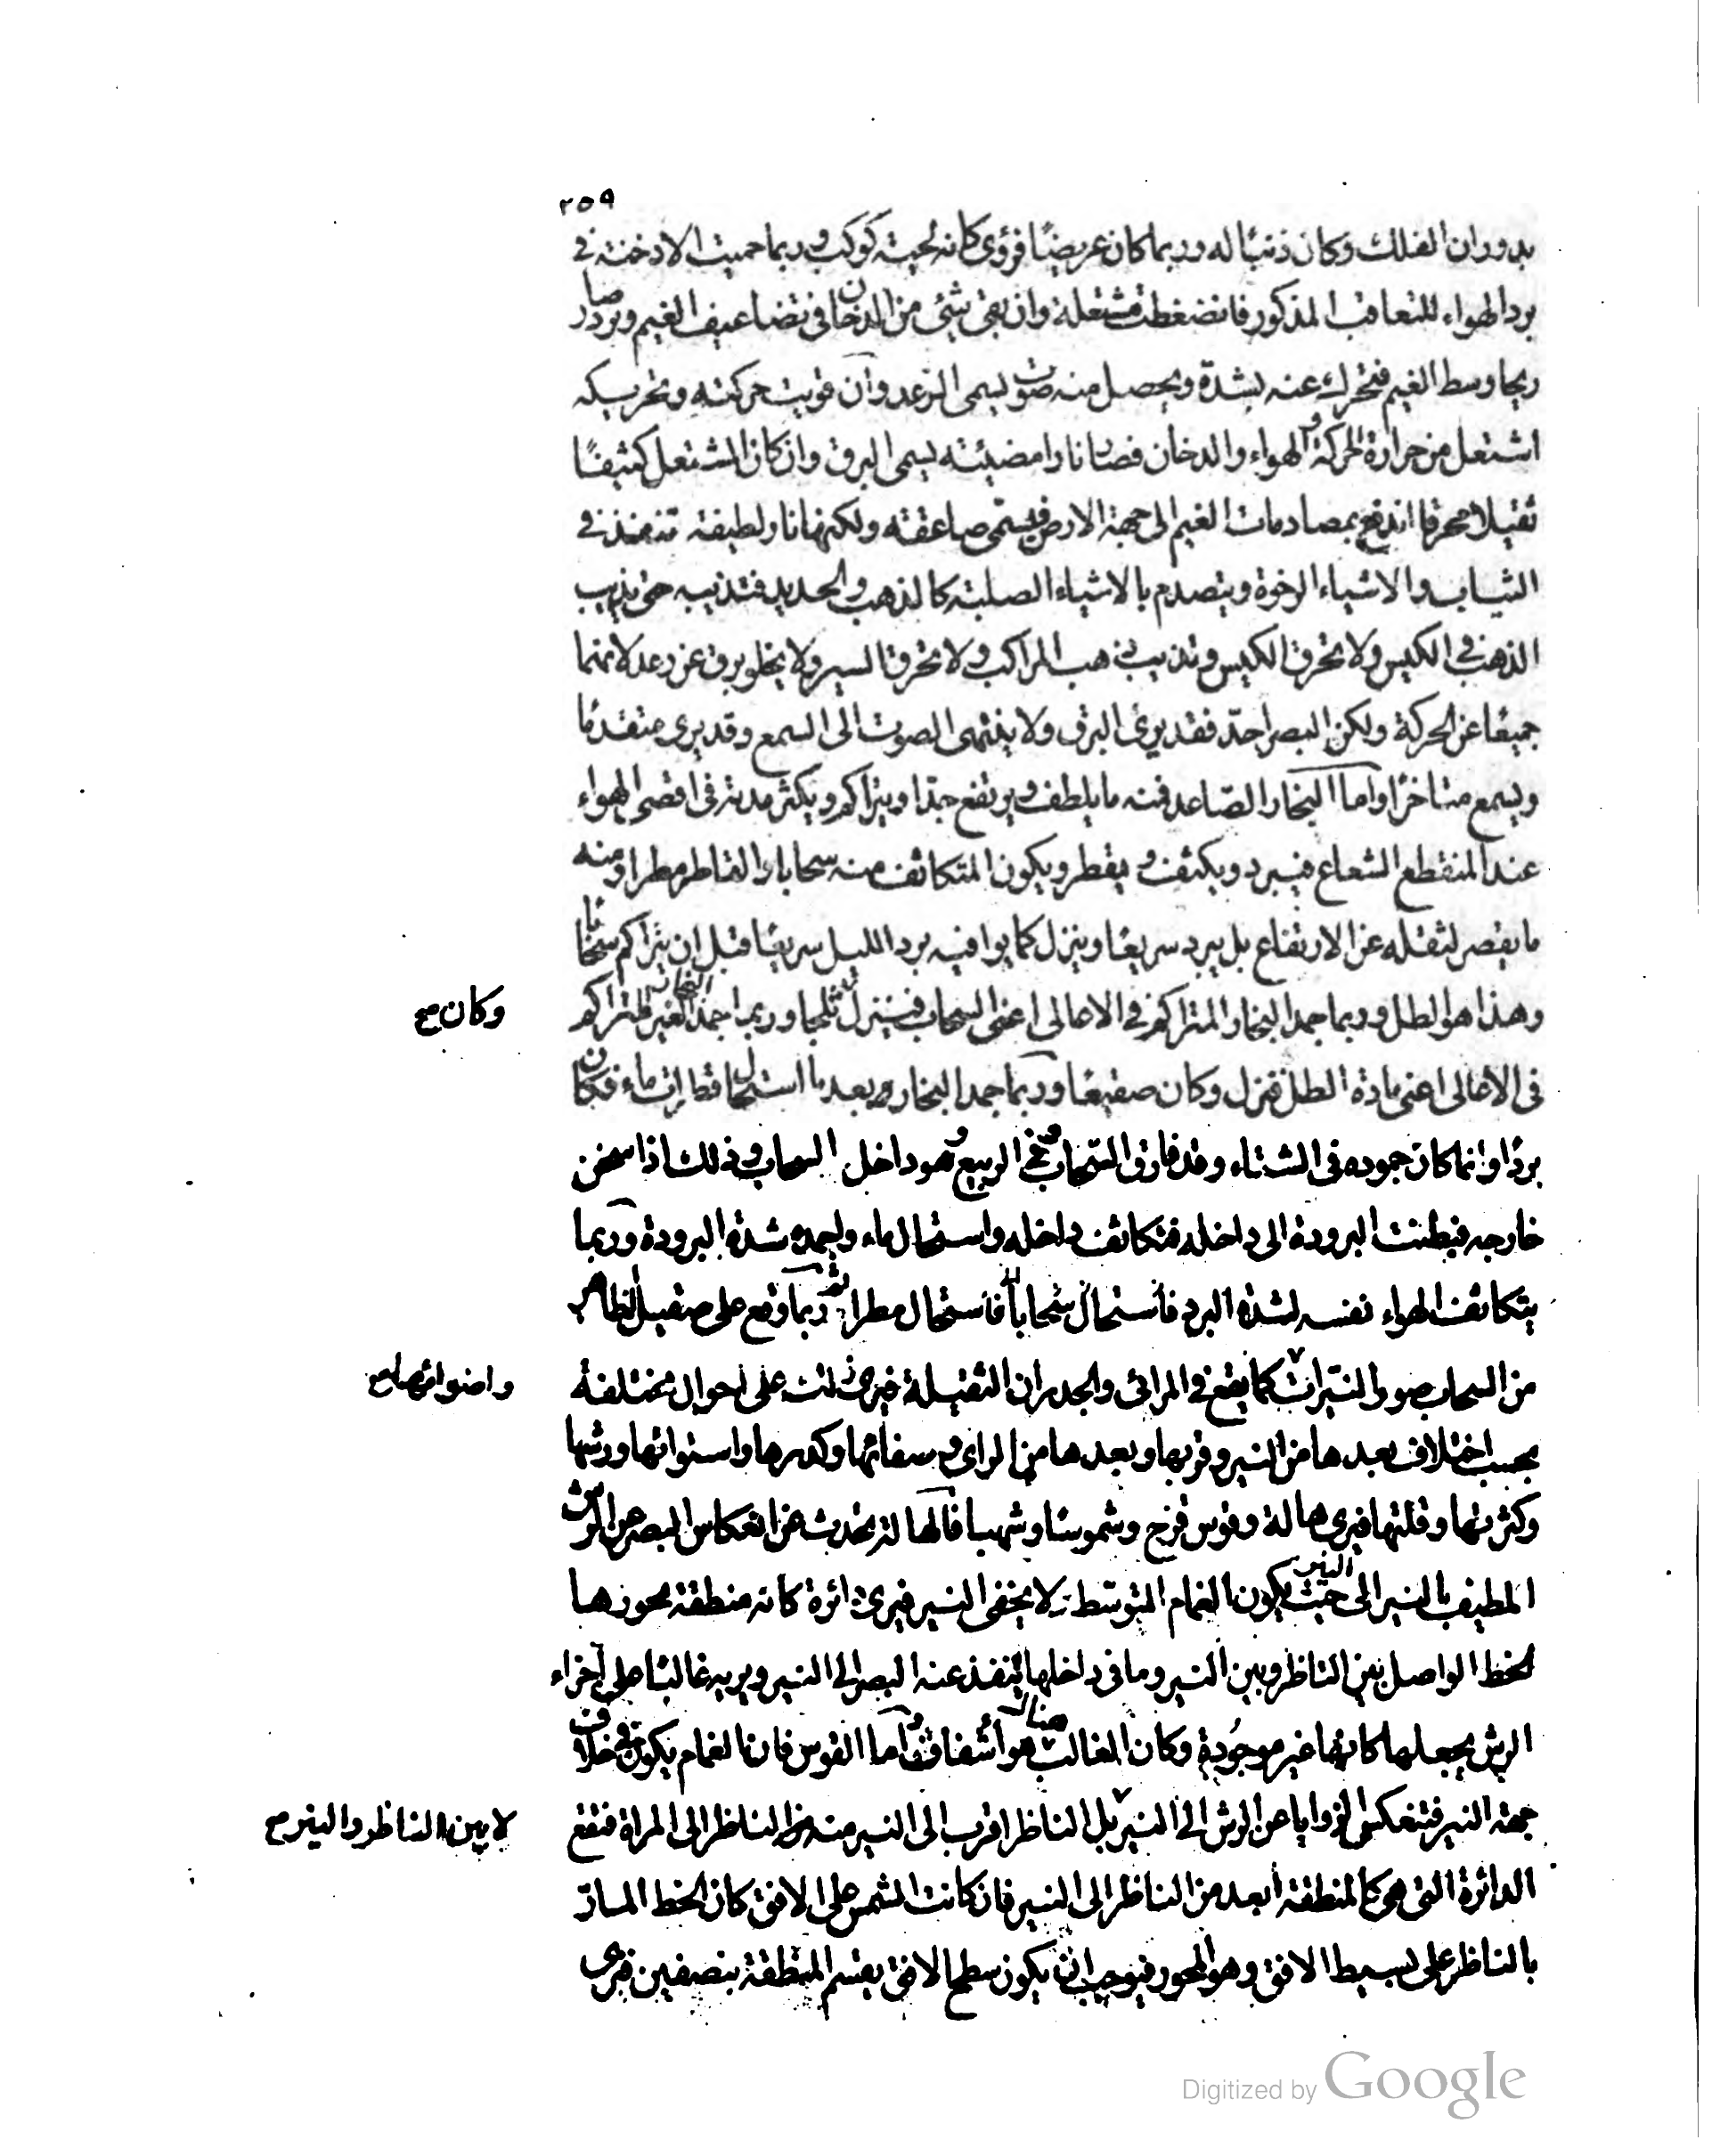 ٢٥٩
بدوران الفلك وكان ذنبًا له وربما كان عريضًا فرؤى كانه لحية كوكب وربما حميت الادخنة فى
برد الهواء للتعاقب المذكور فانضغطت مشتعلة وان بقى شئ من الدخان فى تضاعيف الغيم وبرد صار
ريحا وسط الغيم فتحرك عنه بشدة ويحصل منه صوت يسمى الرعد وان قويت حركته وتحريكه
اشتعل من حرارة الحركة والهواء والدخان فصار نارا مضيئة يسمى البرق وان كان المشتعل كثيفًا
ثقيلا محرقا اندفع بمصادمات الغيم الى جهة الارض فيسمى صاعقة ولكنها نار لطيفة تنفذ فى
الثياب والاشياء الرخوة ويتصدم بالاشياء الصلبة كالذهب والحديد فتذيبه حتى يذيب
الذهب فى الكيس ولا يحرق الكيس وتذيب ذهب المراكب ولا يحرق السير ولا يخلو برق عن رعد لانهما
جميعًا عن الحركة ولكن البصر احدّ فقد يرى البرق ولا ينتهى الصوت الى السمع وقد يرى متقدمًا
ويسمع متاخرًا واما البخار الصّاعد فمنه ما يلطف ويرتفع جدّا ويتراكم ويكثر مدته فى اقصى الهواء
عند المنقطع الشعاع فيبرد ويكثف ويقطر ويكون المتكاثف منه سحابا والقاطر مطرا ومنه
ما يقصر لثقله عن الارتفاع بل يبرد سريعًا وينزل كما يوافيه برد الليل سريعًا قبل ان يتراكم سحابًا
وهذا هو الطل وربما جمد البخار المتراكم فى الاعالى اعنى السحاب فينزل ثلجا وربما جمد البخار الغير المتراكم
وكان صح
فى الاعالى اعنى مادة الطل فنزل وكان صقيعًا وربما جمد البخار بعد ما استحال قطرات ماء فكان
بردًا وانما كان جموده فى الشتاء وقد فارق السّحاب وفى الربيع وهو داخل السحاب وذلك اذا سخن
خارجه فبطنت البرودة الى داخله فتكاثف داخله واستحال ماء واجمده شدة البرودة وربما
يتكاثف الهواء نفسه لشدة البرد فاستحال سحابا فاستحال مطرا ثم ربما وقع على صقيل الظاهر
من السحاب صور النيّرات كما يقع فى المرائى والجدران الثقيلة فيرى ذلك على احوال مختلفة
واضوائها صح
بحسب اختلاف بعدها من النير وقربها وبعدها من الراى وصفائها وكدرها واستوائها ورشها
وكثرتها وقلتها فيرى هالة وقوس قزح وشموسًا وشهبا فالهالة تحدث عن انعكاس البصر عن الرش
المطيف بالنير الى النير حيث يكون الغمام المتوسّط لا يخفى النير فيرى دائرة كانه منطقة محورها
الخط الواصل بين الناظر وبين النير وما فى داخلها ينفذ عنه البصر الى النير ويريه غالبًا على اجزاء
الرش يجعلها كانها غير موجودة وكان الغالب هناك هو أشفاف واما القوس فان الغمام يكون فى خلاف
جهة النير فتنعكس الزوايا عن الرش الى النير بل الناظر اقرب الى النير منه الناظر الى المراة فتقع
لا بين الناظر والنير صح
الدائرة التى هى كالمنطقة ابعد من الناظر الى النير فان كانت الشمس على الافق كان الخط المارّ
بالناظر على بسيط الافق وهو المحور فيوجب ان يكون سطح الافق يقسم المنطقة بنصفين فيرى
Digitized by Google